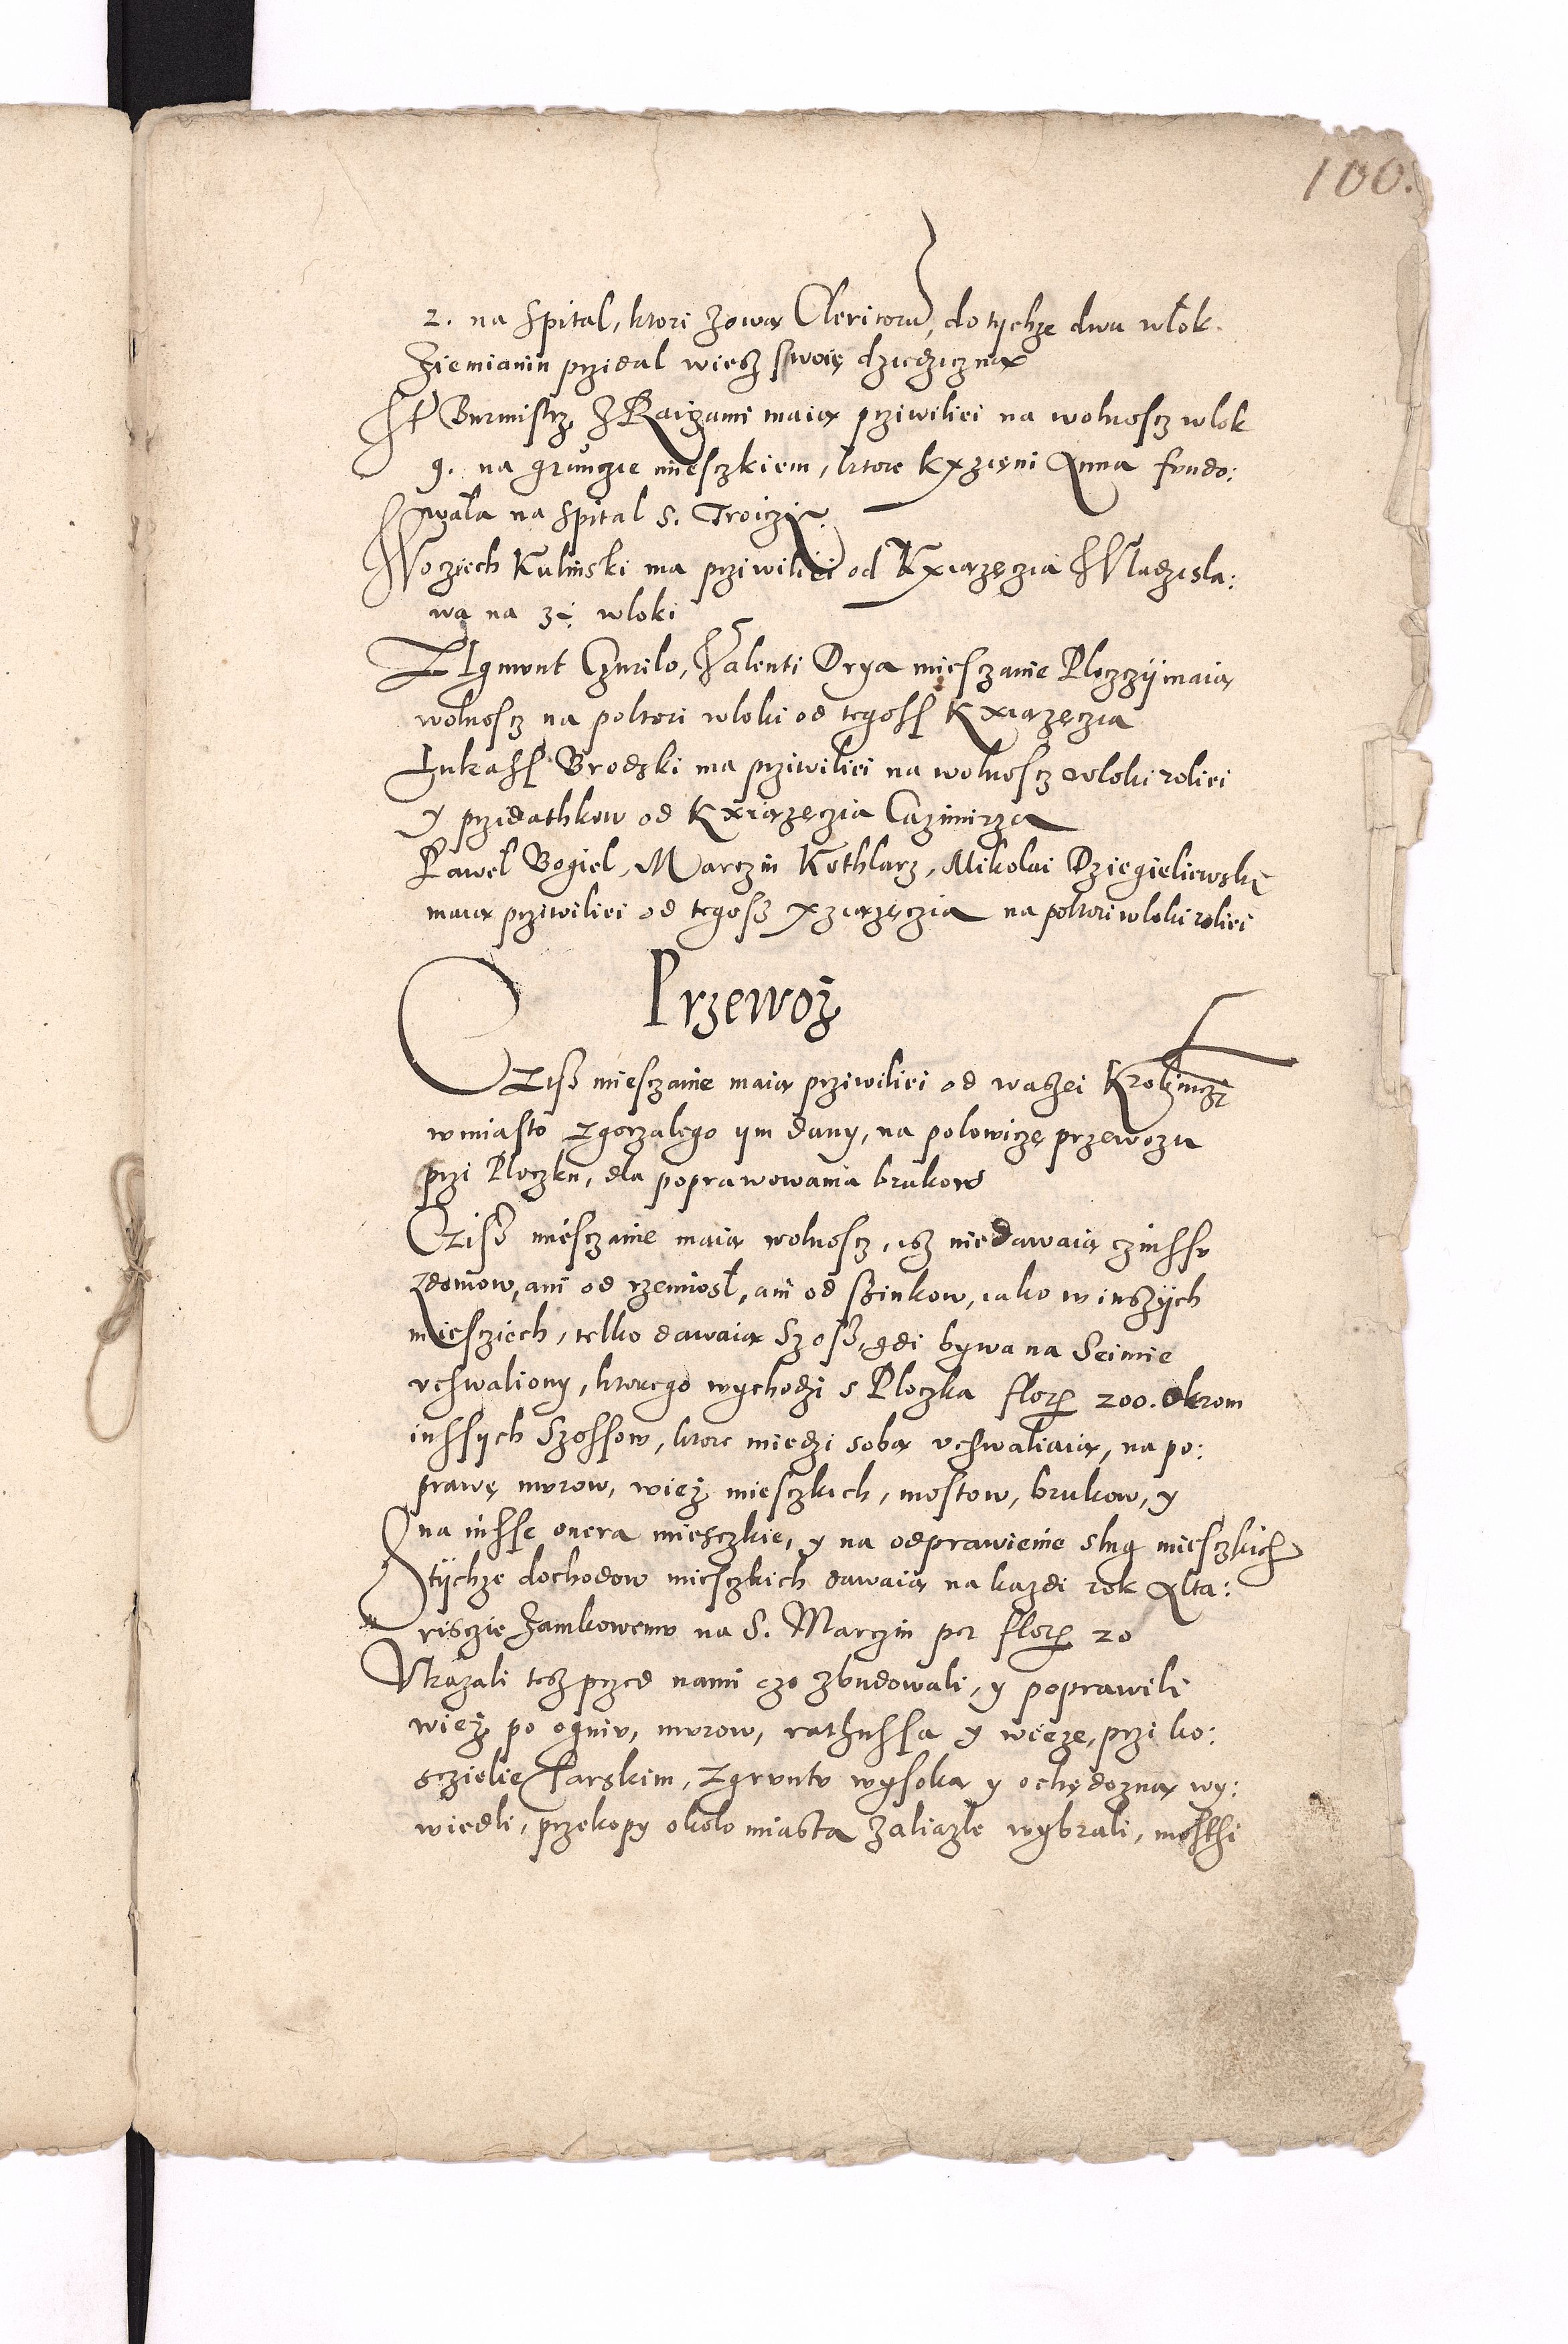 100.
2. na spital, ktori zową Clericorũ, do tychze dwu wlok
Ziemianin przidal wiesz swoię dziedziczną
Burmistrz Z Raiczami maią prziwiliei na wolnoscz wlok
9. na grunczie miesczkiem, ktore Kxzięni Anna fundo:
wala na spital S. Troiczÿ.
Woziech Kulinski ma prziwiliei od Kxiązęczia Wladzisla:
wa na wloki
Zigmont Czurilo, Walenti Drya miesczanie Ploczczÿ maią
wolnoscz na poltori wloki od tegoss Kxiązęczia
Lukass Brodzki ma prziwiliei na wolnoscz wloki roliei
y przidathkow od Kxiązęczia Cazimirza
Pawel Bogiel, Marczin Kothlarz, Mikolai Dziegieliewski
maią prziwiliei od tegoß xziązęczia na poltori wloki roliei
Przewoz
Cziß miesczanie maią prziwiliei od waszei
w miasto zgorzalego ym dany, na polowiczę przewozu
przi Ploczku, dla poprawowania brukow
Cziß miesczanie maią wolnoscz, isz niedawaią czinssu
zdomow, ani od rzemiosl, ani od szinkow, iako w inszych
miesciech, telko dawaią Szoß, gdi bywa na Seimie
uchwaliony, ktorego wychodzi s Ploczka flor 200. okrom
inssych Szossow, ktore miedzi sobą uchwaliaią, na po:
prawę murow, wiez miesczkich, mostow, brukow, y
na insse onera miesczkie, y na odprawienie slug miesczkich
Z tychze dochodow miesczkich dawaią na kazdi rok Alta:
risczie Zamkowemu na S. Marczin per flor 20
Ukazali tesz przed nami czo zbudowali, y poprawili
wiez po ogniu, murow, rathussa y wieze, przi ko:
sczielie Farskim, z gruntu wysoką y ochędozną wy:
wiedli, przekopy okolo miasta zaliazle wybrali, mosthi